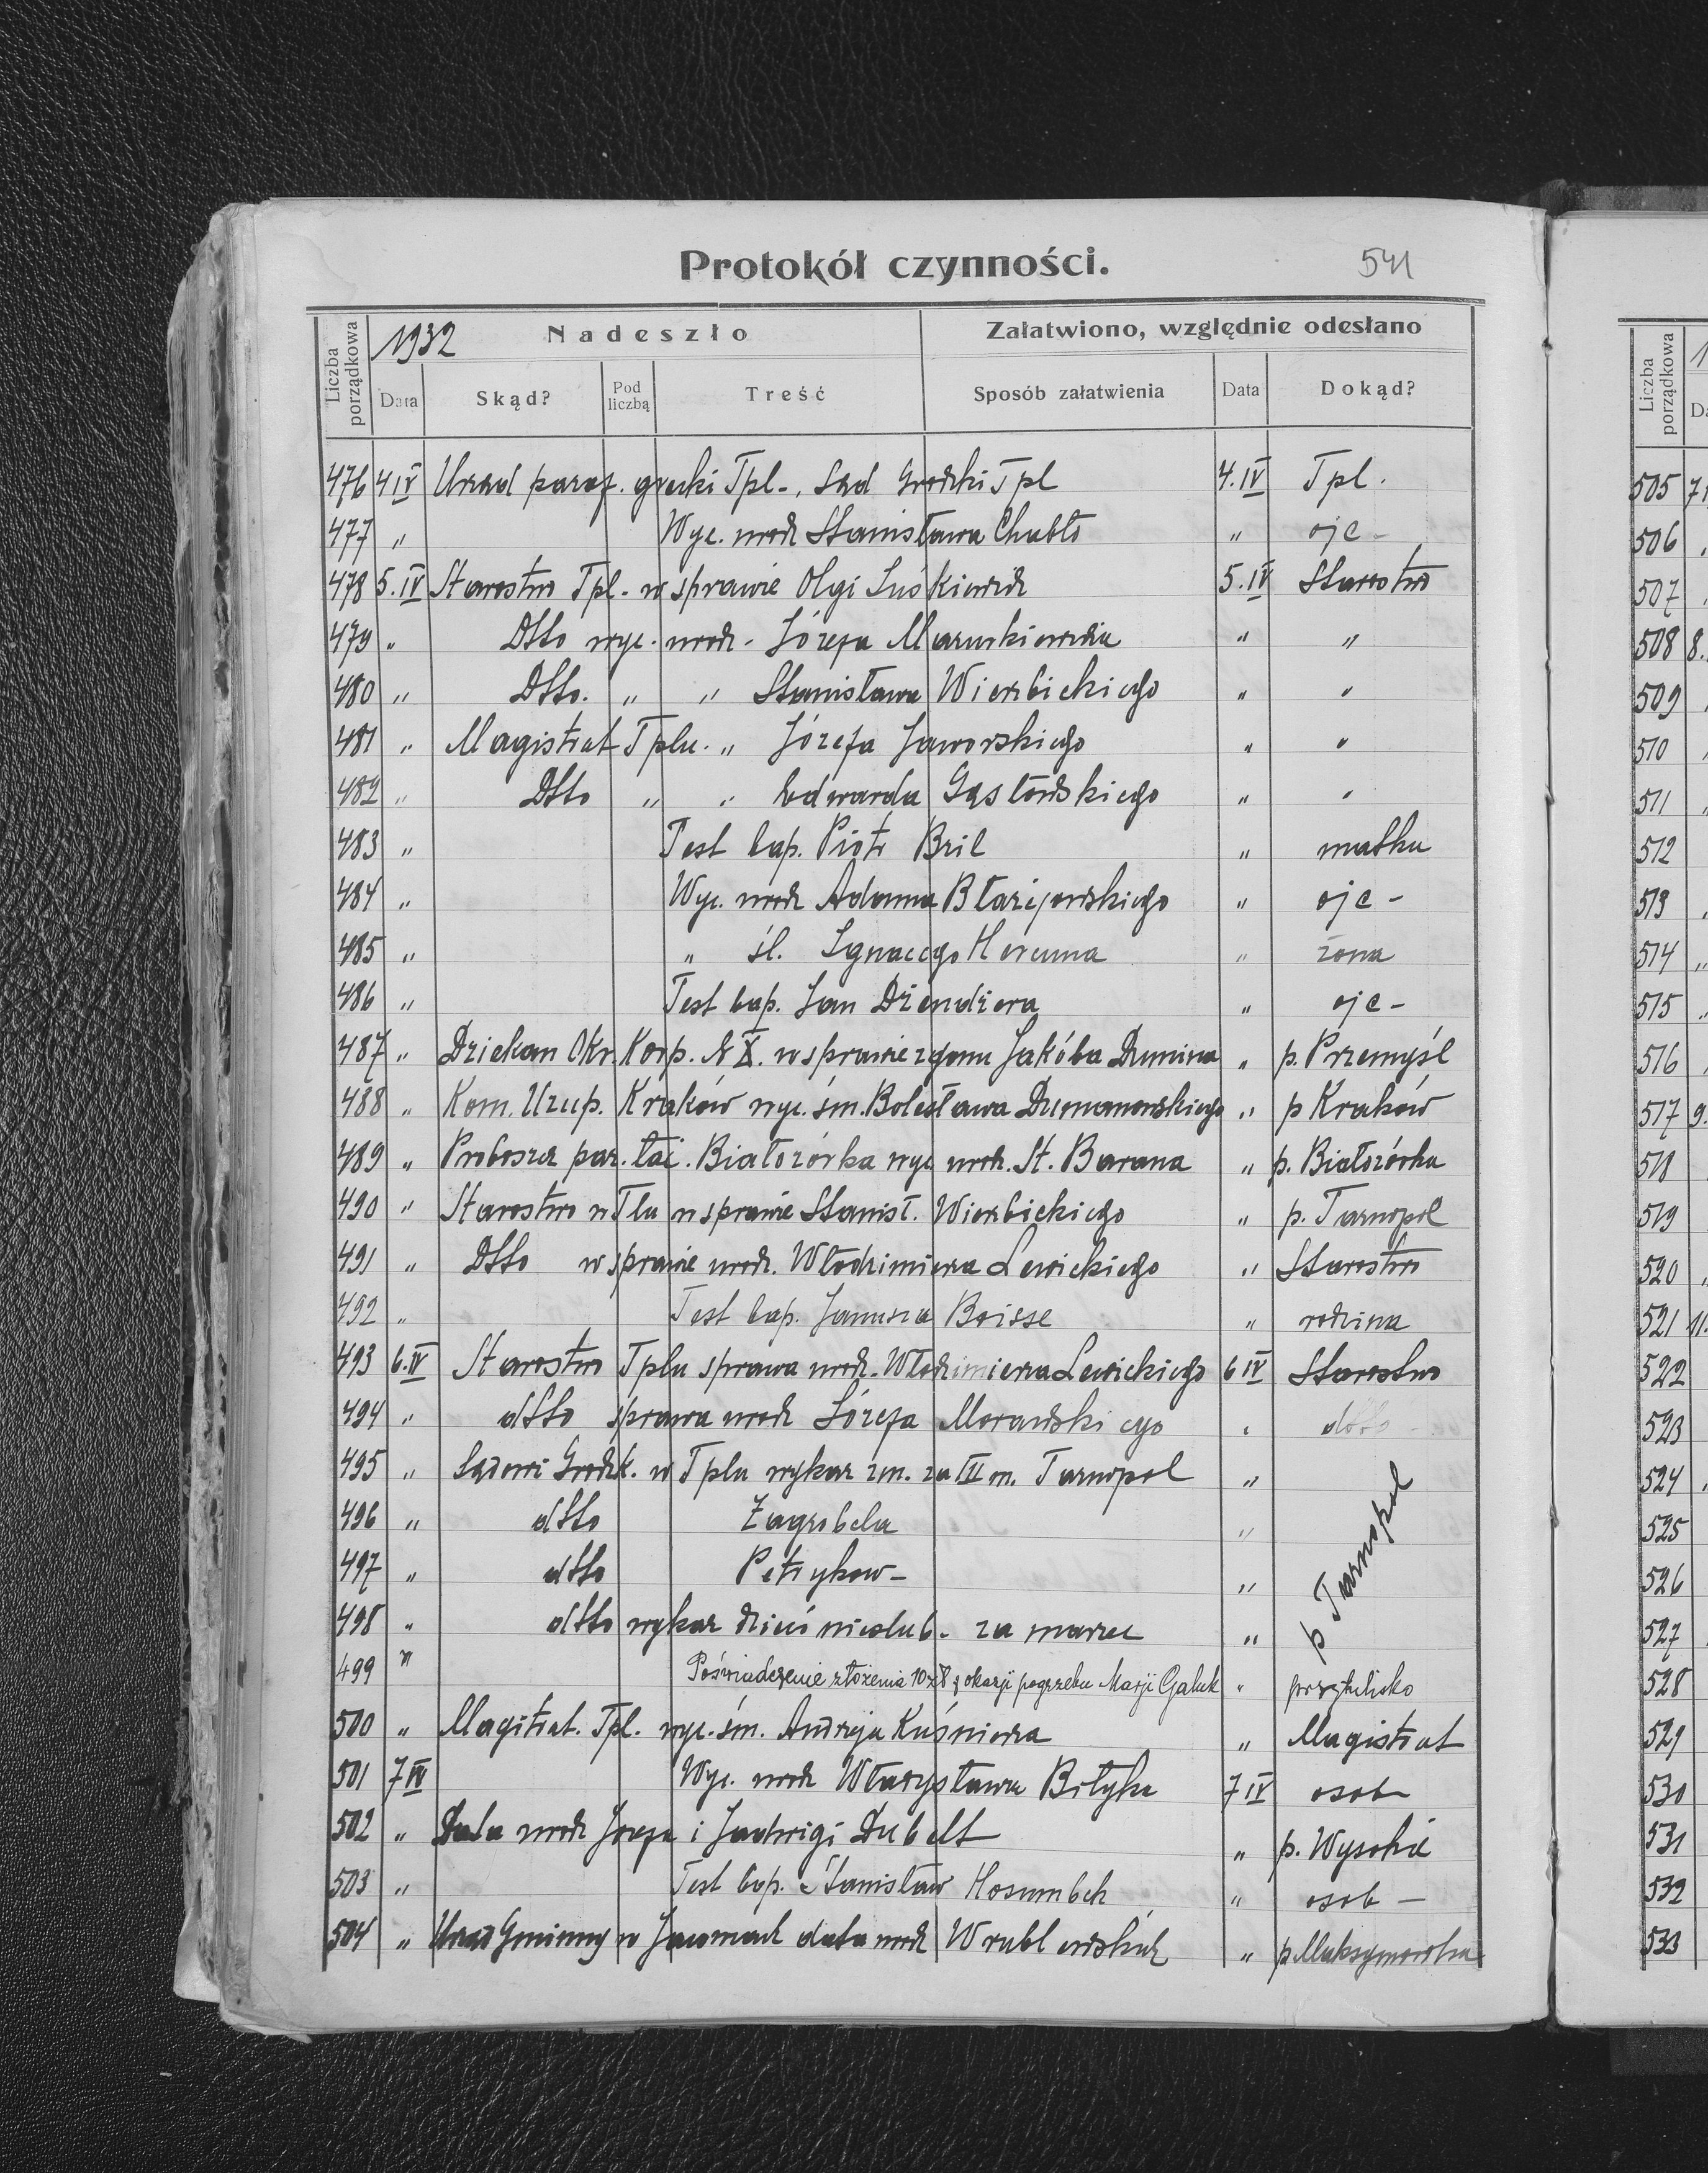 Protokół czynności. 541
Liczba porządkowa 1932 Nadeszło Załatwiono, względnie odesłano
Data Skąd? Pod liczbą Treść Sposób załatwienia Data Dokąd?
476 4 IV Urząd paraf. grecki Tpl., Sąd Grodzki Tpl 4.IV Tpl.
477 " Wyc. urodz Stanisława Chubło " ojc -
478 5.IV Starostwo Tpl. w sprawie Olgi 5.IV Starostwo
479 " Dtto wyc. urodz. Józefa " "
480 " Dtto. " " Stanisława Wierzbickiego " "
481 " Magistrat Tplu. " Józefa Jaworskiego " "
482 " Dtto " " Edwarda Gąstowskiego " "
483 " Test bap. Piotr Bril " matka
484 " Wyc. urodz Adama Błażejowskiego " ojc -
485 " " śl. Ignacego Hercuna " żona
486 " Test bap. Jan Dziendziera " ojc -
487 " Dziekan Okr. Korp. N X. w sprawie zgonu Jakóba " p. Przemyśl
488 " Kom. Uzup. Kraków wyc. śm. Bolesława Dumanowskiego " p Kraków
489 " Proboszcz par. łać. Białozórka wyc urodz. St. Barana " p. Białozórka
490 " Starostwo w Tlu w sprawie Stanisł. Wierzbickiego " p. Tarnopol
491 " Dtto w sprawie urodz. Włodzimierza Lewickiego " Starostwo
492 " Test bap. Janusza Boisse " rodzina
493 6.IV Starostwo Tplu sprawa urodz. Włodzimierza Lewickiego 6 IV Starostwo
494 " dtto sprawa urodz Józefa Morawskiego " dtto
495 " Sądowi Grodzk. w Tplu wykaz zm. za III m. Tarnopol "
496 " dtto Zagrobela "
497 " dtto Petrykow - "
498 " dtto wykaz dzieci nieślub. za marzec " p Tarnopol
499 " Poświadczenie złożenia 10 zł z okazji pogrzebu Marji Galuk "
500 " Magitrat. Tpl. wyc. śm. Andrzeja Kuśnierza " Magistrat
501 7 IV Wyc. urodz Władysława Bityka 7 IV osob
502 " Data urodz Józefa i Jadwigi Dubelt " p. Wysokie
503 " Test bap. Stanisław Hosumbek " osob -
504 " Urząd Gminny w data urodz " p Maksymówka
Liczba porządkowa
505 7
506
507
508 8.
509
510
511
512
513
514 "
515
516
517 9.
518
519
520
521 11.
522
523
524
525
526
527
528
529
530
531
532
533